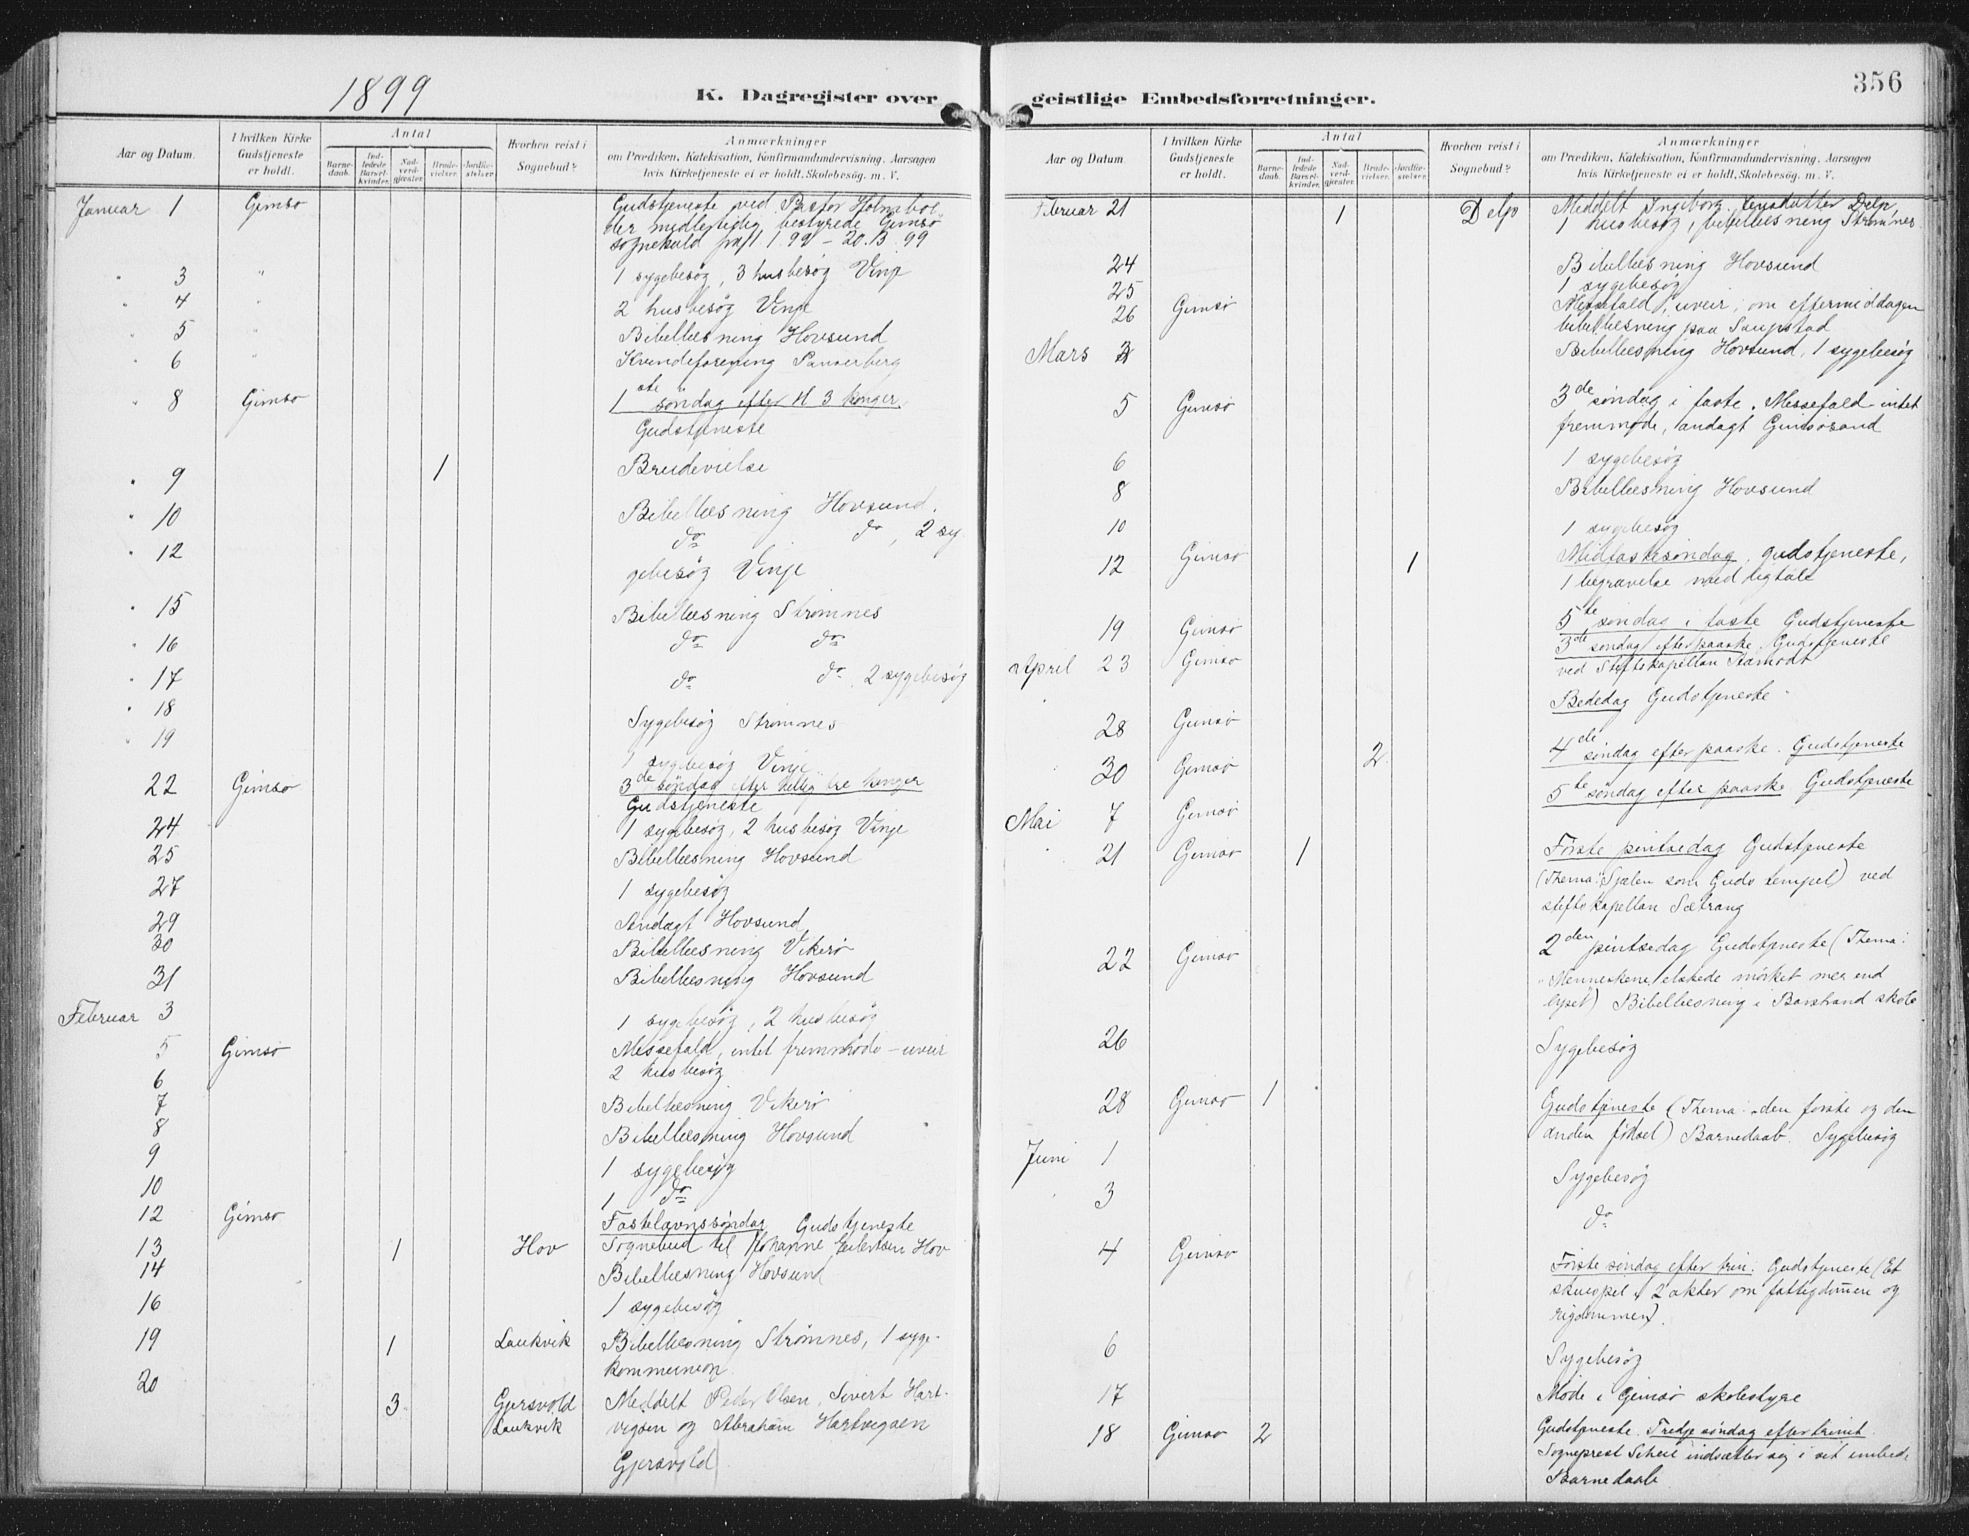 1899
K. Dagregister over
Aar og Datum.
I hvilken Kirke Gudstjeneste er holdt.
Antal
Barne-daab.
Ind-ledede Barsel-kvinder.
Nad-verd-gjæster.
Brude-vielser.
Jordfæ-stelser.
Hvorhen reist i Sognebud?
Anmærkninger
om Prædiken, Katekisation, Konfirmandundervisning, Aarsagen
hvis Kirketjeneste ei er holdt, Skolebesøg. m. V.
Januar 1 Gimsø Gudstjeneste ved Pastor Holmboe
der midlertidig bestyrede Gimsø
sognekald fra 1/1 99 – 20.13.99
" 3 " 1 sygebesøg, 3 husbesøg Vinje
" 4 " 2 husbesøg Vinje
" 5 " Bibellæsning Hovsund
" 6 " Kvindeforening
" 8 Gimsø 1ste søndag efter H 3 konger.
Gudstjeneste
" 9 1 Brudevielse
" 10 Bibellæsning Hovsund.
" 12 do do, 2 sy
gebesøg Vinje
" 15 Bibellæsning Strømnes
" 16 do do
" 17 do do 2 sygebesøg
" 18 Sygebesøg Strømnes
" 19 1 sygebesøg Vinje
22 Gimsø 3de søndag efter hellig tre konger
Gudstjeneste
24 1 sygebesøg, 2 husbesøg Vinje
25 Bibellæsning Hovsund
27 1 sygebesøg
29 Andagt Hovsund
30 Bibellæsning Vikerø
31 Bibellæsning Hovsund
Februar 3 1 sygebesøg, 2 husbesøg
5 Gimsø Messefald, intet fremmøde – uveir
6 2 husbesøg
7 Bibellæsning Vikerø
8 Bibellæsning Hovsund
9 1 sygebesøg
10 1 do
12 Gimsø Fastelavnssøndag Gudstjeneste
13 1 Hov Sognebud til Johanne Eilertsen Hov
14 Bibellæsning Hovsund
16 1 sygebesøg
19 1 Laukvik Bibellæsning Strømnes, 1 syge-
kommunion
20 3 Gjersvold Meddelt Peder Olsen, Sivert Hart-
Laukvik vigsen og Abraham Hartvigsen
Gjersvold
356
geistlige Embedsforretninger.
Aar og Datum
I hvilken Kirke Gudstjeneste er holdt.
Antal
Barne-daab.
Ind-ledede Barsel-kvinder.
Nad-verd-gjæster.
Brude-vielser.
Jordfæ-stelser.
Hvorhen reist i Sognebud?
Anmærkninger
om Prædiken, Katekisation, Konfirmandundervisning, Aarsagen
hvis Kirketjeneste ei er holdt, Skolebesøg. m. V.
Februar 21 1 Delp Meddelt Ingeborg Jensdatter Delp
1 husbesøg, bibellæsning Strømnes
24 Bibellæsning Hovsund
25 1 sygebesøg
26 Gimsø Messefald, uveir, om eftermiddagen
bibellæsning paa Saupstad
Mars 3 Bibellæsning Hovsund, 1 sygebesøg
5 Gimsø 3de søndag i faste. Messefald intet
fremmøde, andagt Gimsøsand
6 1 sygebesøg
8 Bibellæsning Hovsund
10 1 sygebesøg
12 Gimsø 1 Midfastesøndag, gudstjeneste,
1 begravelse med ligtale
19 Gimsø 5te søndag i faste Gudstjeneste
April 23 Gimsø 3de søndag efter paaske, Gudstjeneste
ved Stiftskapellan
28 Gimsø Bededag Gudstjeneste
30 Gimsø 2 4de søndag efter paaske. Gudstjeneste
Mai 7 Gimsø 5te søndag efter paaske Gudstjeneste
21 Gimsø 1 Første pintsedag Gudstjeneste
(Thema: Sjælen som Guds tempel) ved
stiftskapellan Sætrang
22 Gimsø 2den pintsedag Gudstjeneste (Thema:
"Menneskene elskede mørket mer end
lyset") Bibellæsning i Barstrand skole
26 Sygebesøg
28 Gimsø 1 Gudstjeneste (Thema: den første og den
anden fødsel) Barnedaab. Sygebesøg
Juni 1 Sygebesøg
3 do
4 Gimsø Første søndag efter trin. Gudstjeneste (Et
skuespil i 2 akter om fattigdommen og
rigdommen).
6 Sygebesøg
17 Møde i Gimsø skolestyre
18 Gimsø 2 Gudstjeneste. Tredje søndag efter trinit.
Sogneprest indsætter sig i sit embede
Barnedaab